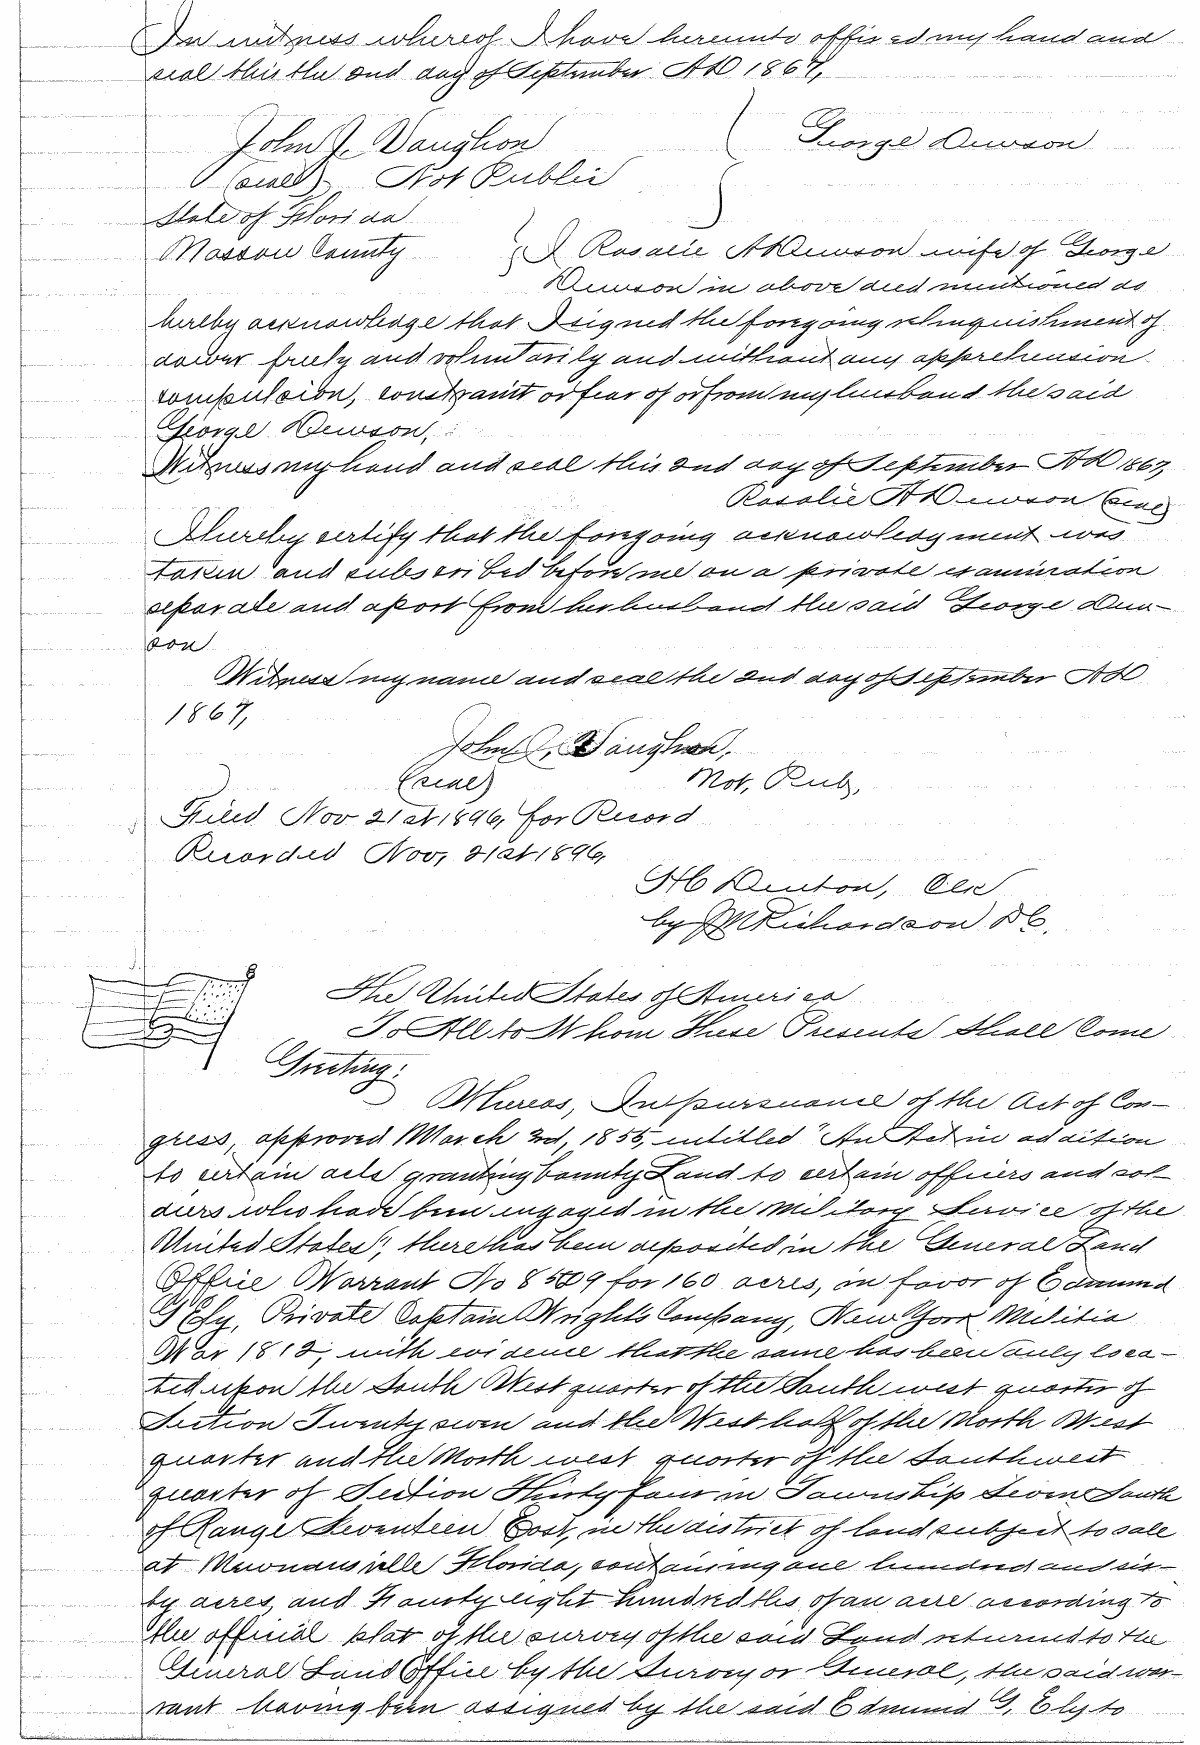 In witness whereof I have hereunto affixed my hand and
seal this the 2nd day of September AD 1867,
John J. Vaughon
George Dewson
(seal) Not Public
State of Florida
Nassau County
I Rosalie A Dewson wife of George
Dewson in above deed mentioned do
hereby acknowledge that I signed the foregoing relinquishment of
dower freely and voluntarily and without any apprehension
compulsion, constraint or fear of or from my husband the said
George Dewson,
Witness my hand and seal this 2nd day of September AD 1867,
Rosalie A Dewson (seal)
I hereby certify that the foregoing acknowledgment was
taken and subscribed before me on a private examination
separate and apart from her husband the said George Dew-
son
Witness my name and seal the 2nd day of September AD
1867,
John Vaughon,
(seal) Not, Pub,
Filed Nov 21st 1896, for Record
Recorded Nov, 21st 1896,
H C Denton, Clk
by J M Richardson D C.
The United States of America
To All to Whom These Presents Shall Come
Greeting:
Whereas, In pursuance of the Act of Con-
gress, approved March 3rd, 1855, entitled "An Act in addition
to certain acts granting bounty Land to certain officers and sol-
diers who have been engaged in the Military Service of the
United States", there has been deposited in the General Land
Office Warrant No for 160 acres, in favor of Edmund
G Ely, Private Captain Wright's Company, New York Militia
War 1812, with evidence that the same has been duly loca-
ted upon the South West quarter of the South west quarter of
Section Twenty seven and the West half of the North West
quarter and the North west quarter of the Southwest
quarter of Section Thirty four in Township Seven South
of Range Seventeen East, in the district of land subject to sale
at Newnansville Florida, containing one hundred and six-
ty acres, and Fourty eight hundredths of an acre according to
the official plat of the survey of the said Land returned to the
General Land Office by the Surveyor General, the said war-
rant having been assigned by the said Edmund G, Ely to